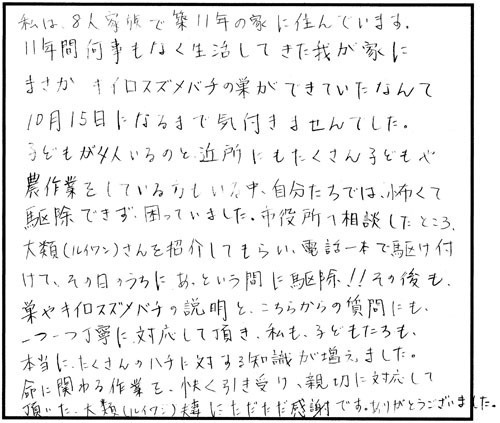 私は、8人家族で築11年の家に住んでいます。
11年間何事もなく生活してきた我が家に
まさか キイロスズメバチの巣ができていたなんて
10月15日になるまで気付きませんでした。
子どもが4人いるのと、近所にもたくさん子どもや
農作業をしている方もいる中、自分たちでは、怖くて
駆除できず、困っていました。市役所へ相談したところ、
大類(ルイワン)さんを紹介してもらい、電話一本で駆け付
けて、その日のうちに、あっという間に駆除!!その後も、
巣やキイロスズメバチの説明と、こちらからの質問にも、
一つ一つ丁寧に、対応して頂き、私も、子どもたちも、
本当に、たくさんのハチに対する知識が増えました。
命に関わる作業を、快く引き受け、親切に対応して
頂いた、大類(ルイワン)様にただただ感謝です。ありがとうございました。